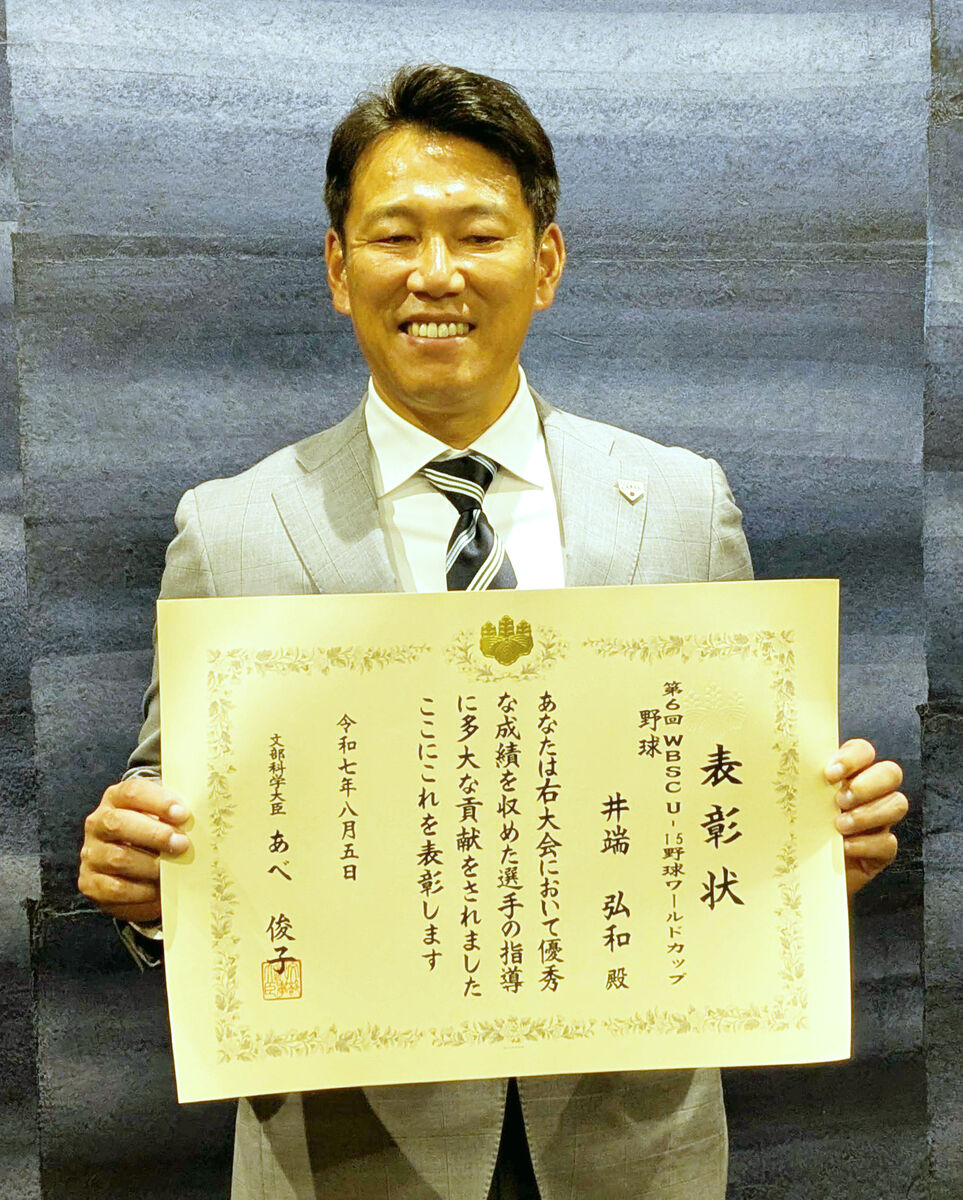 表彰状
第6回WBSC U-15野球ワールドカップ
野球
井端 弘和 殿
あなたは右大会において優秀
な成績を収めた選手の指導
に多大な貢献をされました
ここにこれを表彰します
令和七年八月五日
文部科学大臣 あべ 俊子